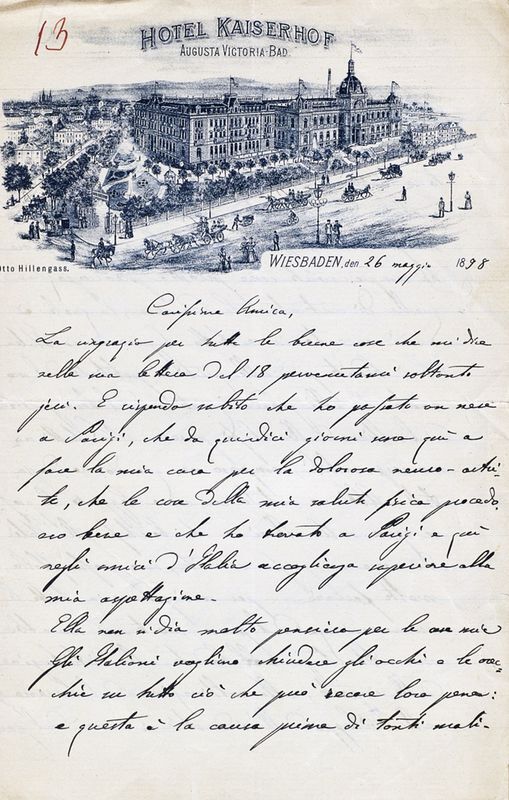 13
HOTEL KAISERHOF
AUGUSTA VICTORIA-BAD.
Otto Hillengass.
WIESBADEN, den 26 maggio 1898
Carissima Amica,
La ringrazio per tutte le buone cose che mi dice
nella sua lettera del 18 pervenutami soltanto
jeri. E rispondo subito che ho passato un mese
a Parigi, che da quindici giorni sono quì a
fare la mia cura per la dolorosa neuro-artri-
te, che le cose della mia salute fisica procedo
no bene e che ho trovato a Parigi e quì
negli amici d'Italia accoglienza superiore alla
mia aspettazione.
Ella non si dia molto pensiero per le cose mie
Gli Italiani vogliono chiudere gli occhi e le orec=
chie su tutto ciò che può recare loro pena:
e questa è la causa prima di tanti mali.